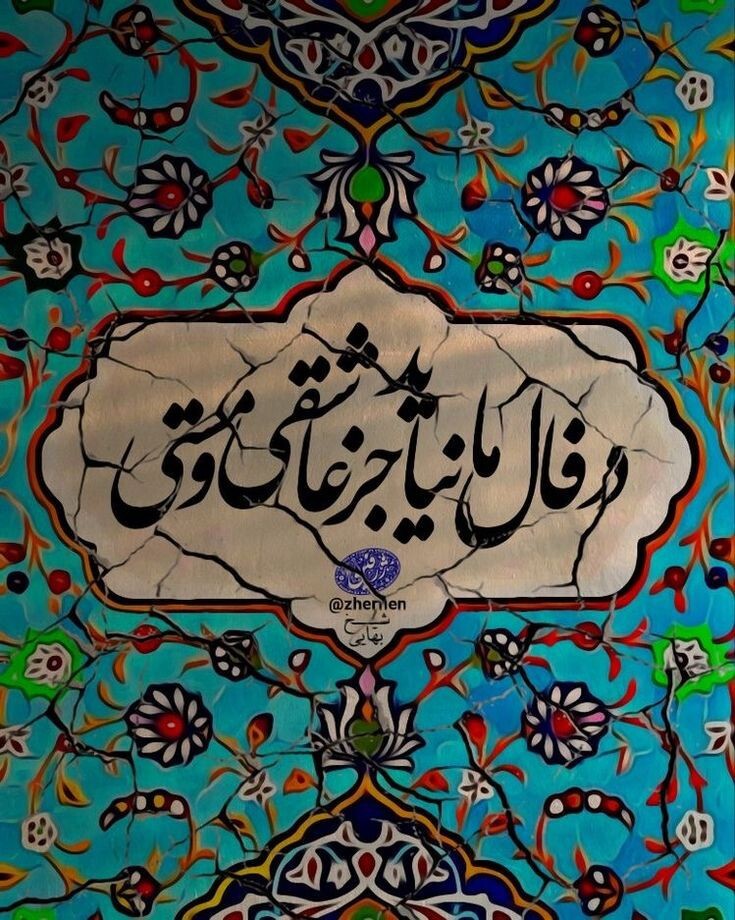 در فال ما نیاید جز عاشقی و مستی
@zhernen
شیخ
بهایی